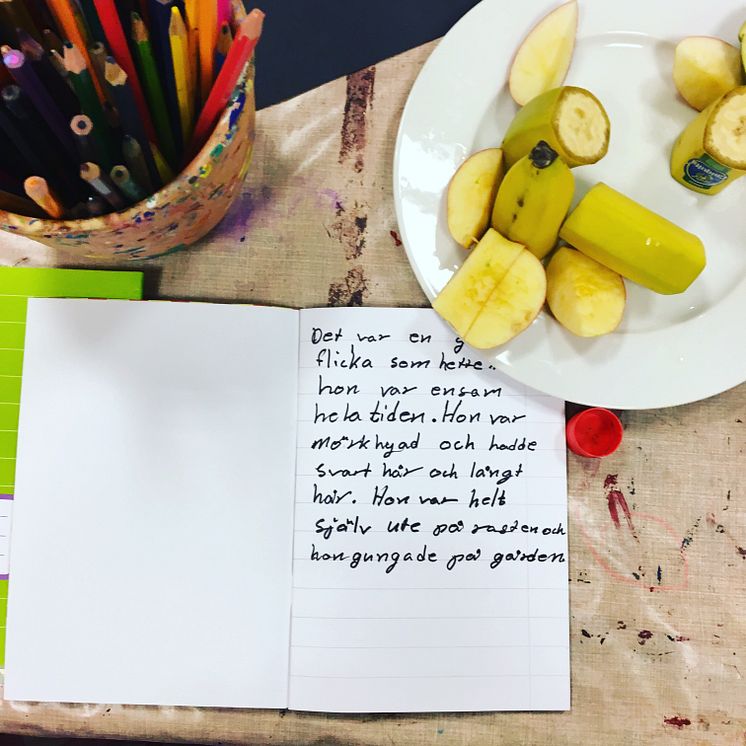 Det var en
flicka som hette..
hon var ensam
hela tiden. Hon var
mörkhyad och hadde
svart hår och långt
hår. Hon var helt
själv ute på rasten och
hon gungade på gården